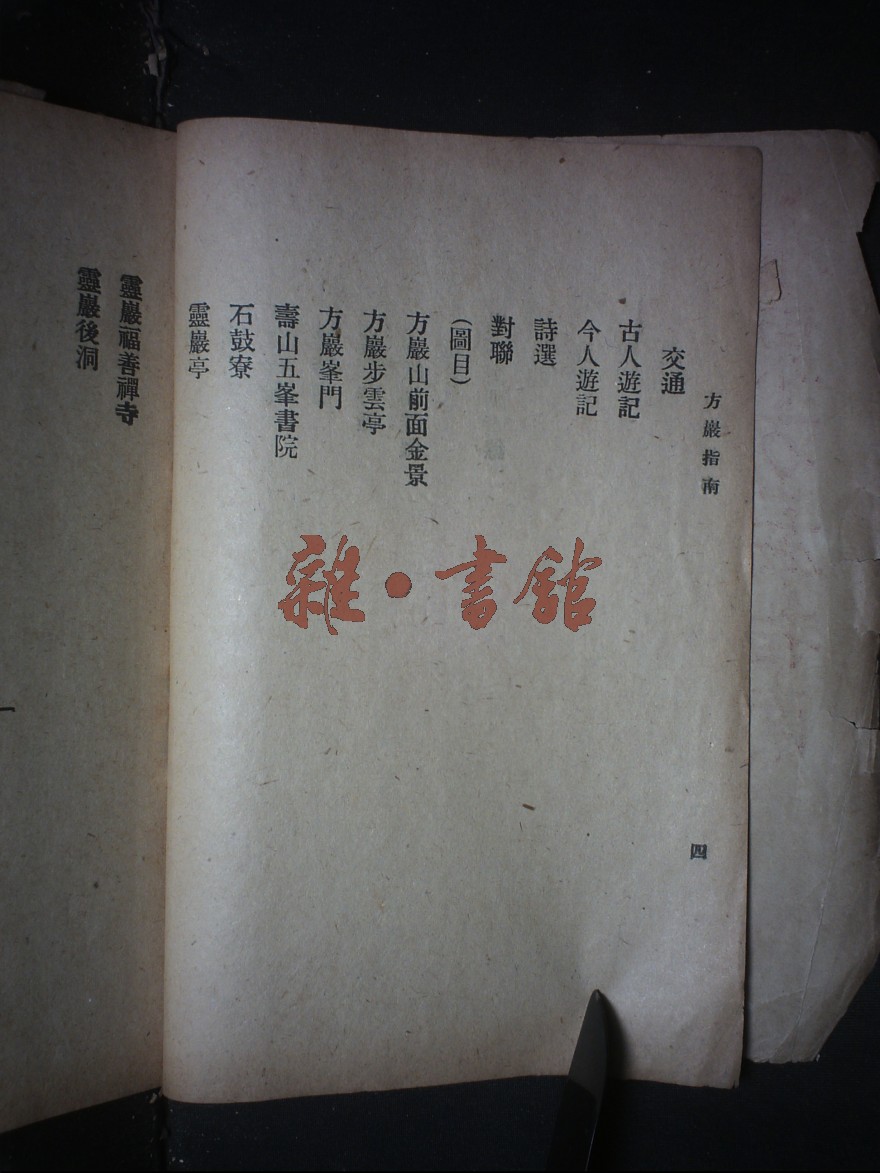 方巖指南
四
交通
古人遊記
今人遊記
詩選
對聯
(圖目)
方巖山前面金景
方巖步雲亭
方巖峯門
壽山五峯書院
石鼓寮
靈巖亭
靈巖福善禪寺
靈巖後洞
一
雜·書館